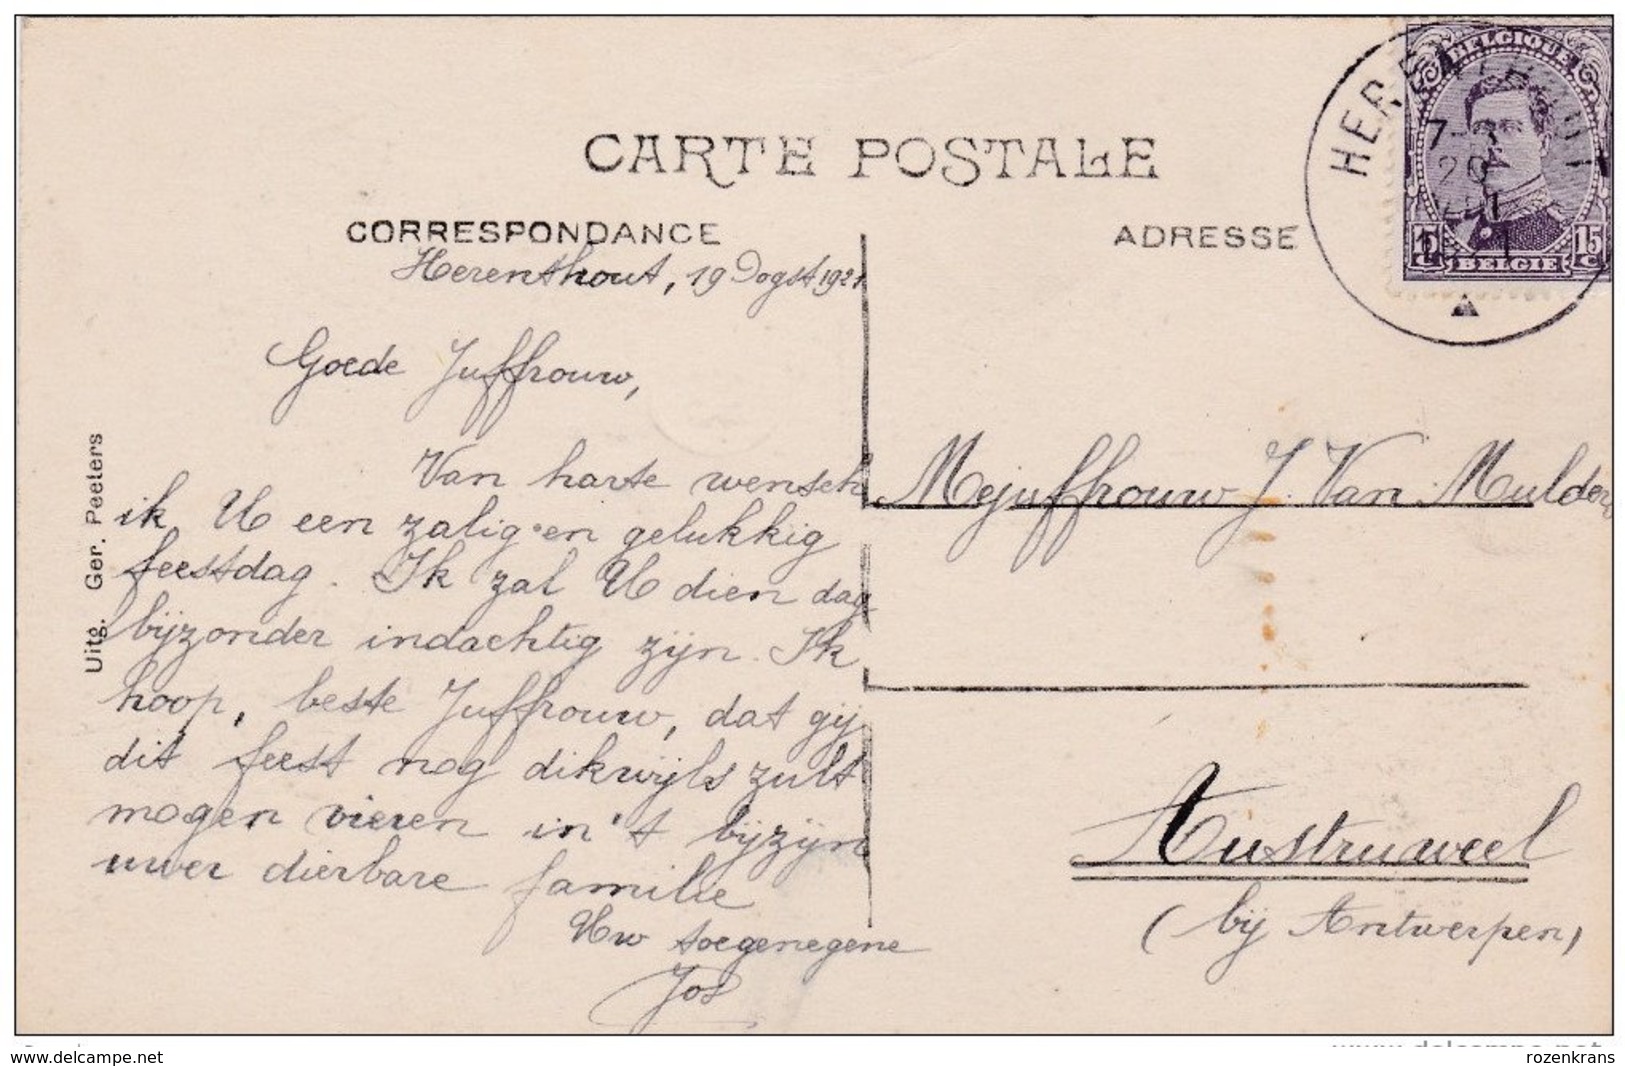 CARTE POSTALE
CORRESPONDANCE
ADRESSE
BELGIQUE
15 15
BELGIE
Herenthout, 19 Oogst 1921
Goede Juffrouw,
Van harte wensch
ik U een zalig en gelukkig
feestdag. Ik zal U dien dag
bijzonder indachtig zijn. Ik
hoop, beste Juffrouw, dat gij
dit feest nog dikwijls zult
mogen vieren in 't bijzijn
uwer dierbare familie
Uw toegenegene
Jos
Mejuffrouw J. Van Mulders
Austruweel
(bij Antwerpen)
Uitg. Ger. Peeters
www.delcampe.net
www.delcampe.net
rozenkrans